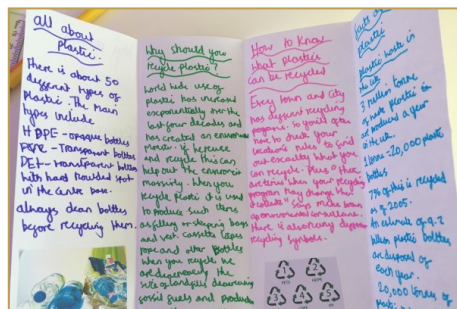 all about
plastic:
There is about 50
different types of
plastic. The main
types include
HDPE - opaque bottles
- Transparent bottles
- transparent bottles
with hard moulded spot
in the centre base.
always clean bottles
before recycling them.
Why should you
recycle plastic?
world wide use of
plastic has increased
exponentially over the
last four decades and
has created an
if we reuse
and recycle this can
help out the environment
massivly. When you
recycle plastic it is used
to produce such items
as filling or sleeping bags
and vest. cassette tapes
rope and other bottles
when you recycle we
are the
size of landfills decreasing
fossil fuels and
How to know
what plastics
can be recycled
Every town and city
has different recycling
programs. so you'd often
have to check your
rules to find
out what you
can recycle. Plus there
are times when your recycling
program may change they
There is also many different
recycling symbols.
1
2
3
4
5
plastic
plastic waste in
the uk
3 million tonne
of waste plastic
are produced a year
in the uk.
1 tonne - 20,000 plastic
bottles
7% of this is recycled
as of 2005.
an estimate of 9.2
billion plastic bottles
are disposed of
each year.
20,000 tonnes of